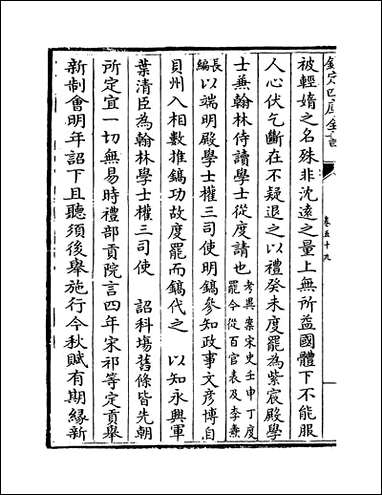 欽定四庫全書
卷五十九
被輕媠之名殊非沈遠之量上無所益國體下不能服
人心伏乞斷在不疑退之以禮癸未度罷為紫宸殿學
士兼翰林侍讀學士從度請也考異案宋史壬申丁度
罷今從百官表及李燾
長編以端明殿學士權三司使明鎬參知政事文彥博自
貝州入相數推鎬功故度罷而鎬代之 以知永興軍
葉清臣為翰林學士權三司使 詔科場舊條皆先朝
所定宜一切無易時禮部貢院言四年宋祁等定貢舉
新制會明年詔下且聽須後舉施行今秋賦有期緣新